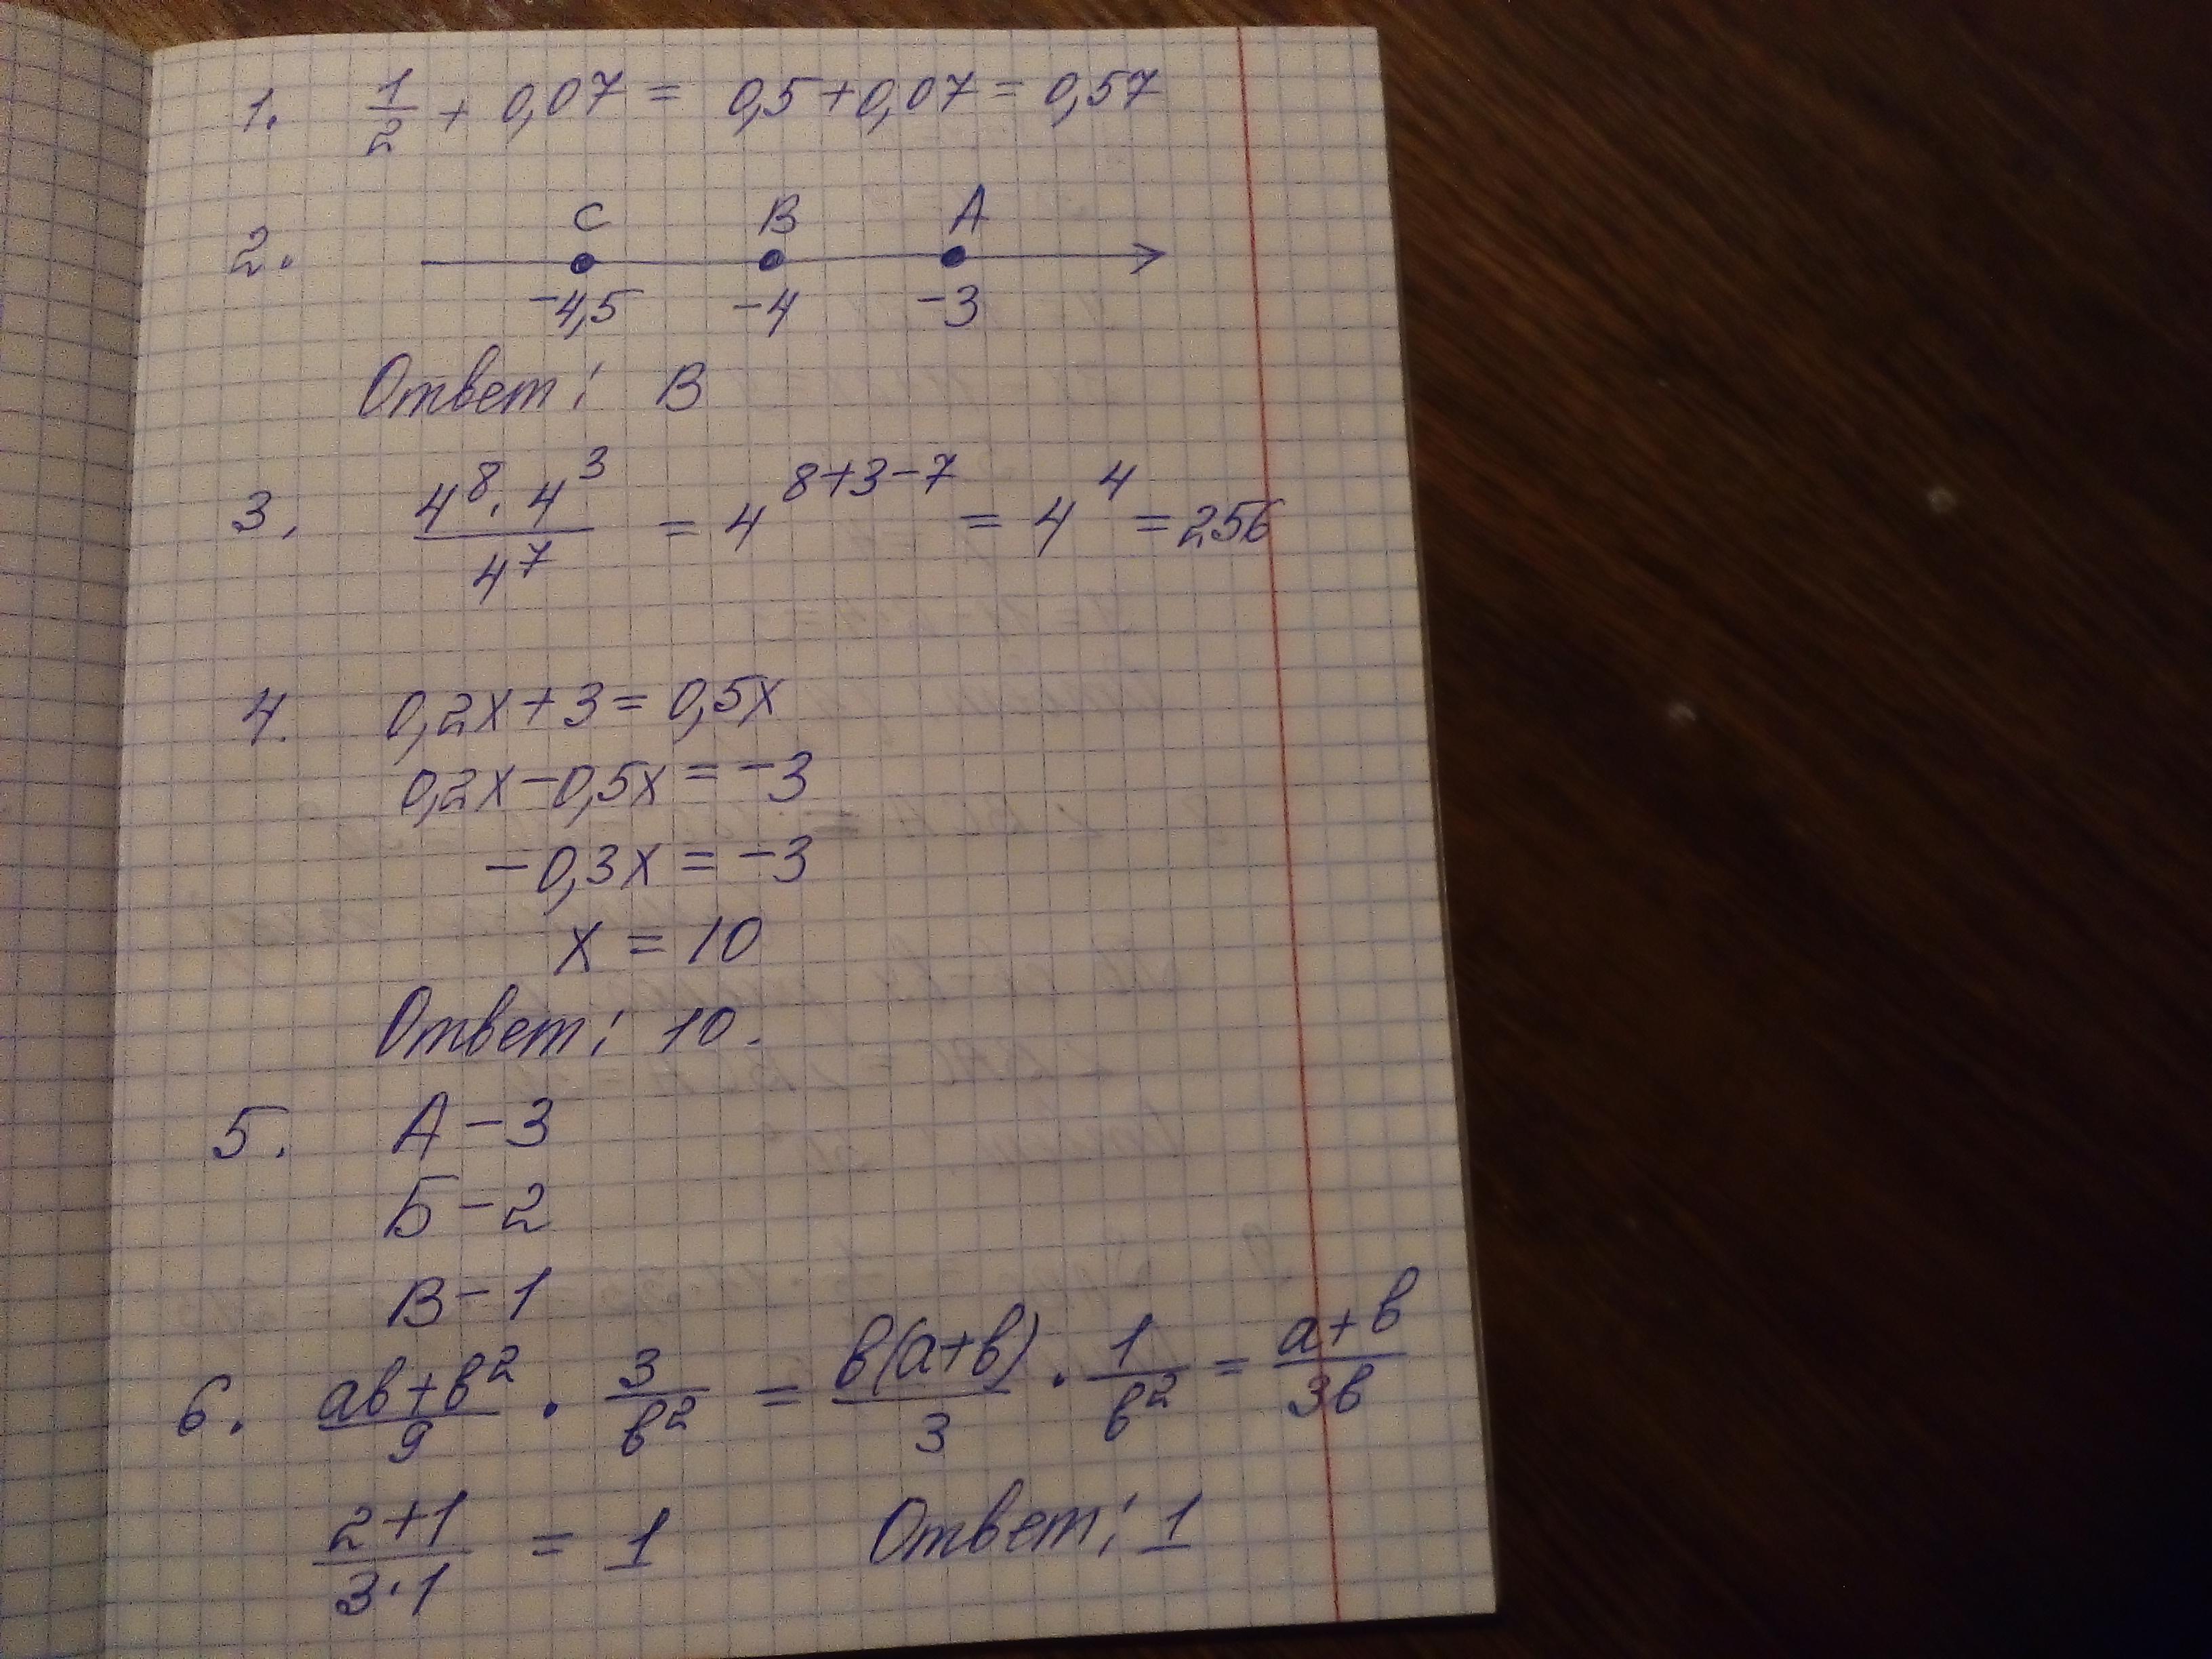 1. 1/2 + 0,07 = 0,5 + 0,07 = 0,57
2. C B A
-4,5 -4 -3
Ответ: В
3. 4^8 · 4^3 / 4^7 = 4^(8+3-7) = 4^4 = 256
4. 0,2x + 3 = 0,5x
0,2x - 0,5x = -3
-0,3x = -3
x = 10
Ответ: 10.
5. А - 3
Б - 2
В - 1
6. (ab + b^2)/9 · 3/b^2 = b(a+b)/3 · 1/b^2 = (a+b)/3b
(2+1)/(3·1) = 1 Ответ: 1